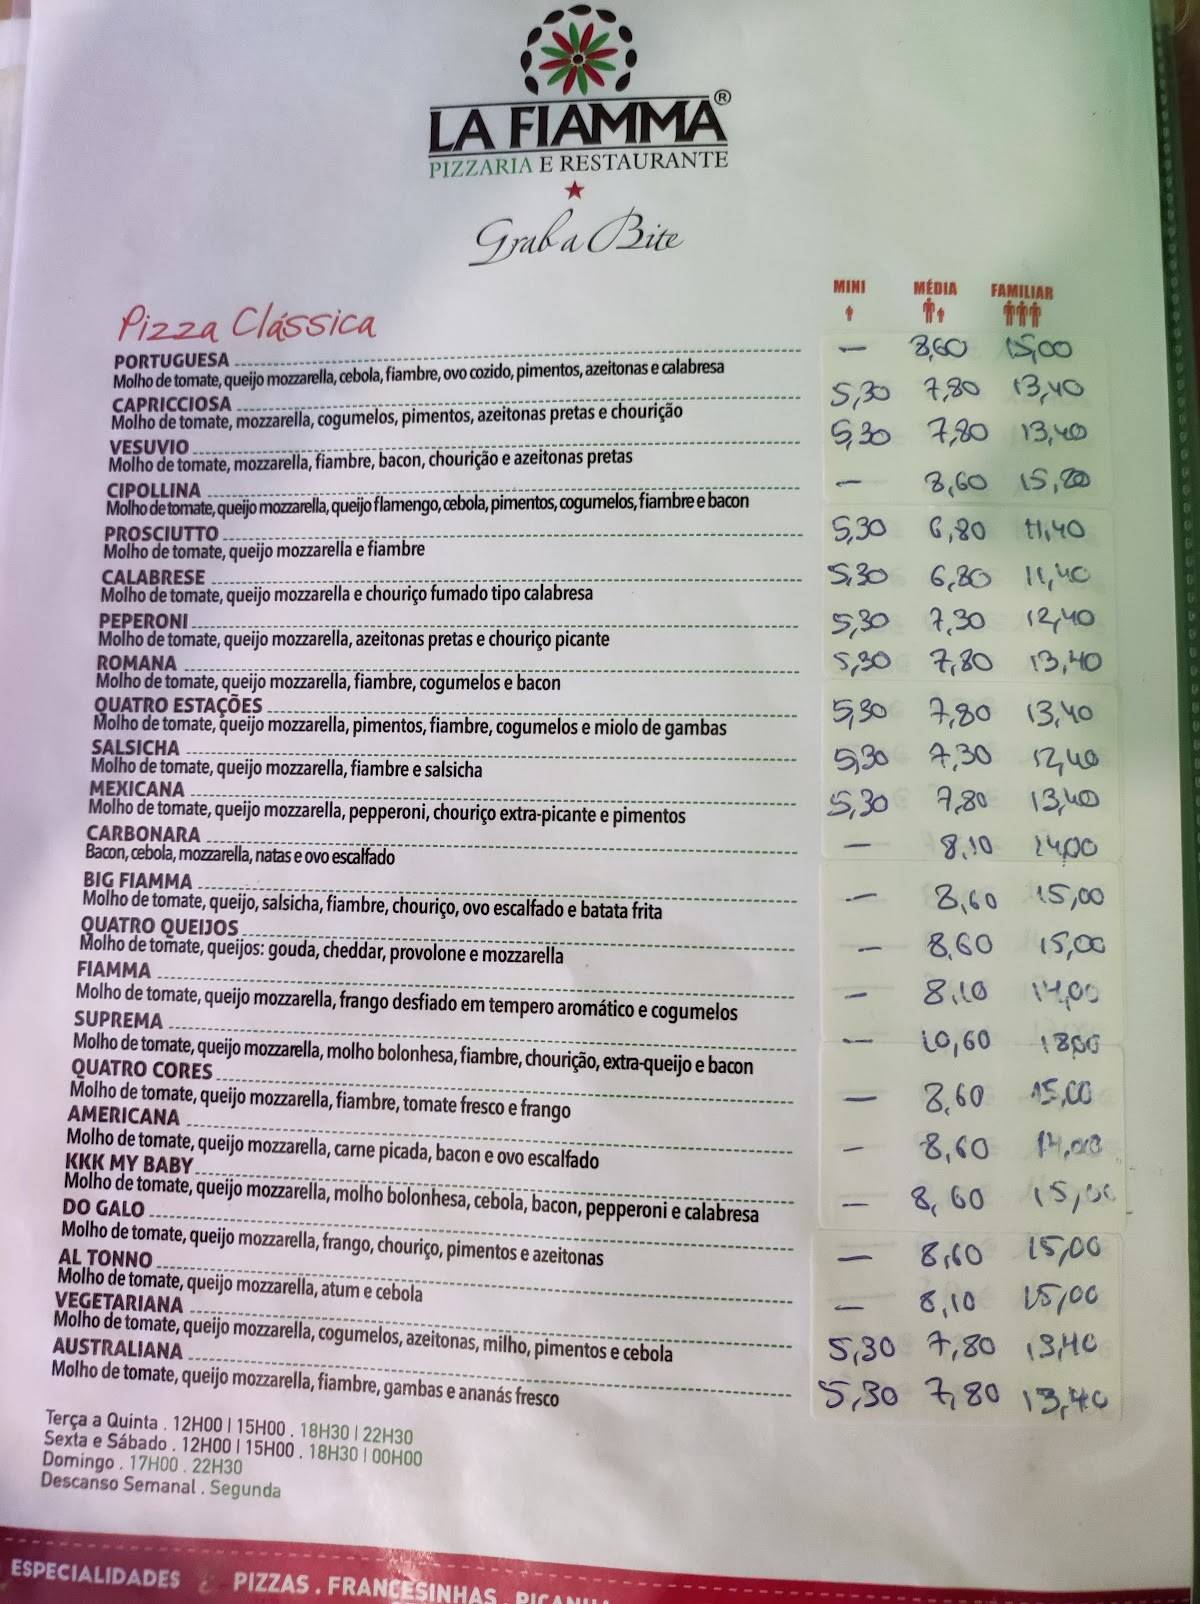 LA FIAMMA ®
PIZZARIA E RESTAURANTE
Grab a Bite
MINI MÉDIA FAMILIAR
Pizza Clássica
PORTUGUESA — 8,60 15,00
Molho de tomate, queijo mozzarella, cebola, fiambre, ovo cozido, pimentos, azeitonas e calabresa
CAPRICCIOSA 5,30 7,80 13,40
Molho de tomate, mozzarella, cogumelos, pimentos, azeitonas pretas e chourição
VESUVIO 5,30 7,80 13,40
Molho de tomate, mozzarella, fiambre, bacon, chourição e azeitonas pretas
CIPOLLINA — 8,60 15,
Molho de tomate, queijo mozzarella, queijo flamengo, cebola, pimentos, cogumelos, fiambre e bacon
PROSCIUTTO 5,30 6,80 11,40
Molho de tomate, queijo mozzarella e fiambre
CALABRESE 5,30 6,80 11,40
Molho de tomate, queijo mozzarella e chouriço fumado tipo calabresa
PEPERONI 5,30 7,30 12,40
Molho de tomate, queijo mozzarella, azeitonas pretas e chouriço picante
ROMANA 5,30 7,80 13,40
Molho de tomate, queijo mozzarella, fiambre, cogumelos e bacon
QUATRO ESTAÇÕES 5,30 7,80 13,40
Molho de tomate, queijo mozzarella, pimentos, fiambre, cogumelos e miolo de gambas
SALSICHA 5,30 7,30 12,40
Molho de tomate, queijo mozzarella, fiambre e salsicha
MEXICANA 5,30 7,80 13,40
Molho de tomate, queijo mozzarella, pepperoni, chouriço extra-picante e pimentos
CARBONARA — 8,10 14,00
Bacon, cebola, mozzarella, natas e ovo escalfado
BIG FIAMMA — 8,60 15,00
Molho de tomate, queijo, salsicha, fiambre, chouriço, ovo escalfado e batata frita
QUATRO QUEIJOS — 8,60 15,00
Molho de tomate, queijos: gouda, cheddar, provolone e mozzarella
FIAMMA — 8,10 14,00
Molho de tomate, queijo mozzarella, frango desfiado em tempero aromático e cogumelos
SUPREMA — 10,60 18,00
Molho de tomate, queijo mozzarella, molho bolonhesa, fiambre, chourição, extra-queijo e bacon
QUATRO CORES — 8,60 15,00
Molho de tomate, queijo mozzarella, fiambre, tomate fresco e frango
AMERICANA — 8,60 14,00
Molho de tomate, queijo mozzarella, carne picada, bacon e ovo escalfado
KKK MY BABY — 8,60 15,00
Molho de tomate, queijo mozzarella, molho bolonhesa, cebola, bacon, pepperoni e calabresa
DO GALO — 8,60 15,00
Molho de tomate, queijo mozzarella, frango, chouriço, pimentos e azeitonas
AL TONNO — 8,10 15,00
Molho de tomate, queijo mozzarella, atum e cebola
VEGETARIANA 5,30 7,80 13,40
Molho de tomate, queijo mozzarella, cogumelos, azeitonas, milho, pimentos e cebola
AUSTRALIANA 5,30 7,80 13,40
Molho de tomate, queijo mozzarella, fiambre, gambas e ananás fresco
Terça a Quinta . 12H00 | 15H00 . 18H30 | 22H30
Sexta e Sábado . 12H00 | 15H00 . 18H30 | 00H00
Domingo . 17H00 . 22H30
Descanso Semanal . Segunda
ESPECIALIDADES PIZZAS . FRANCESINHAS .